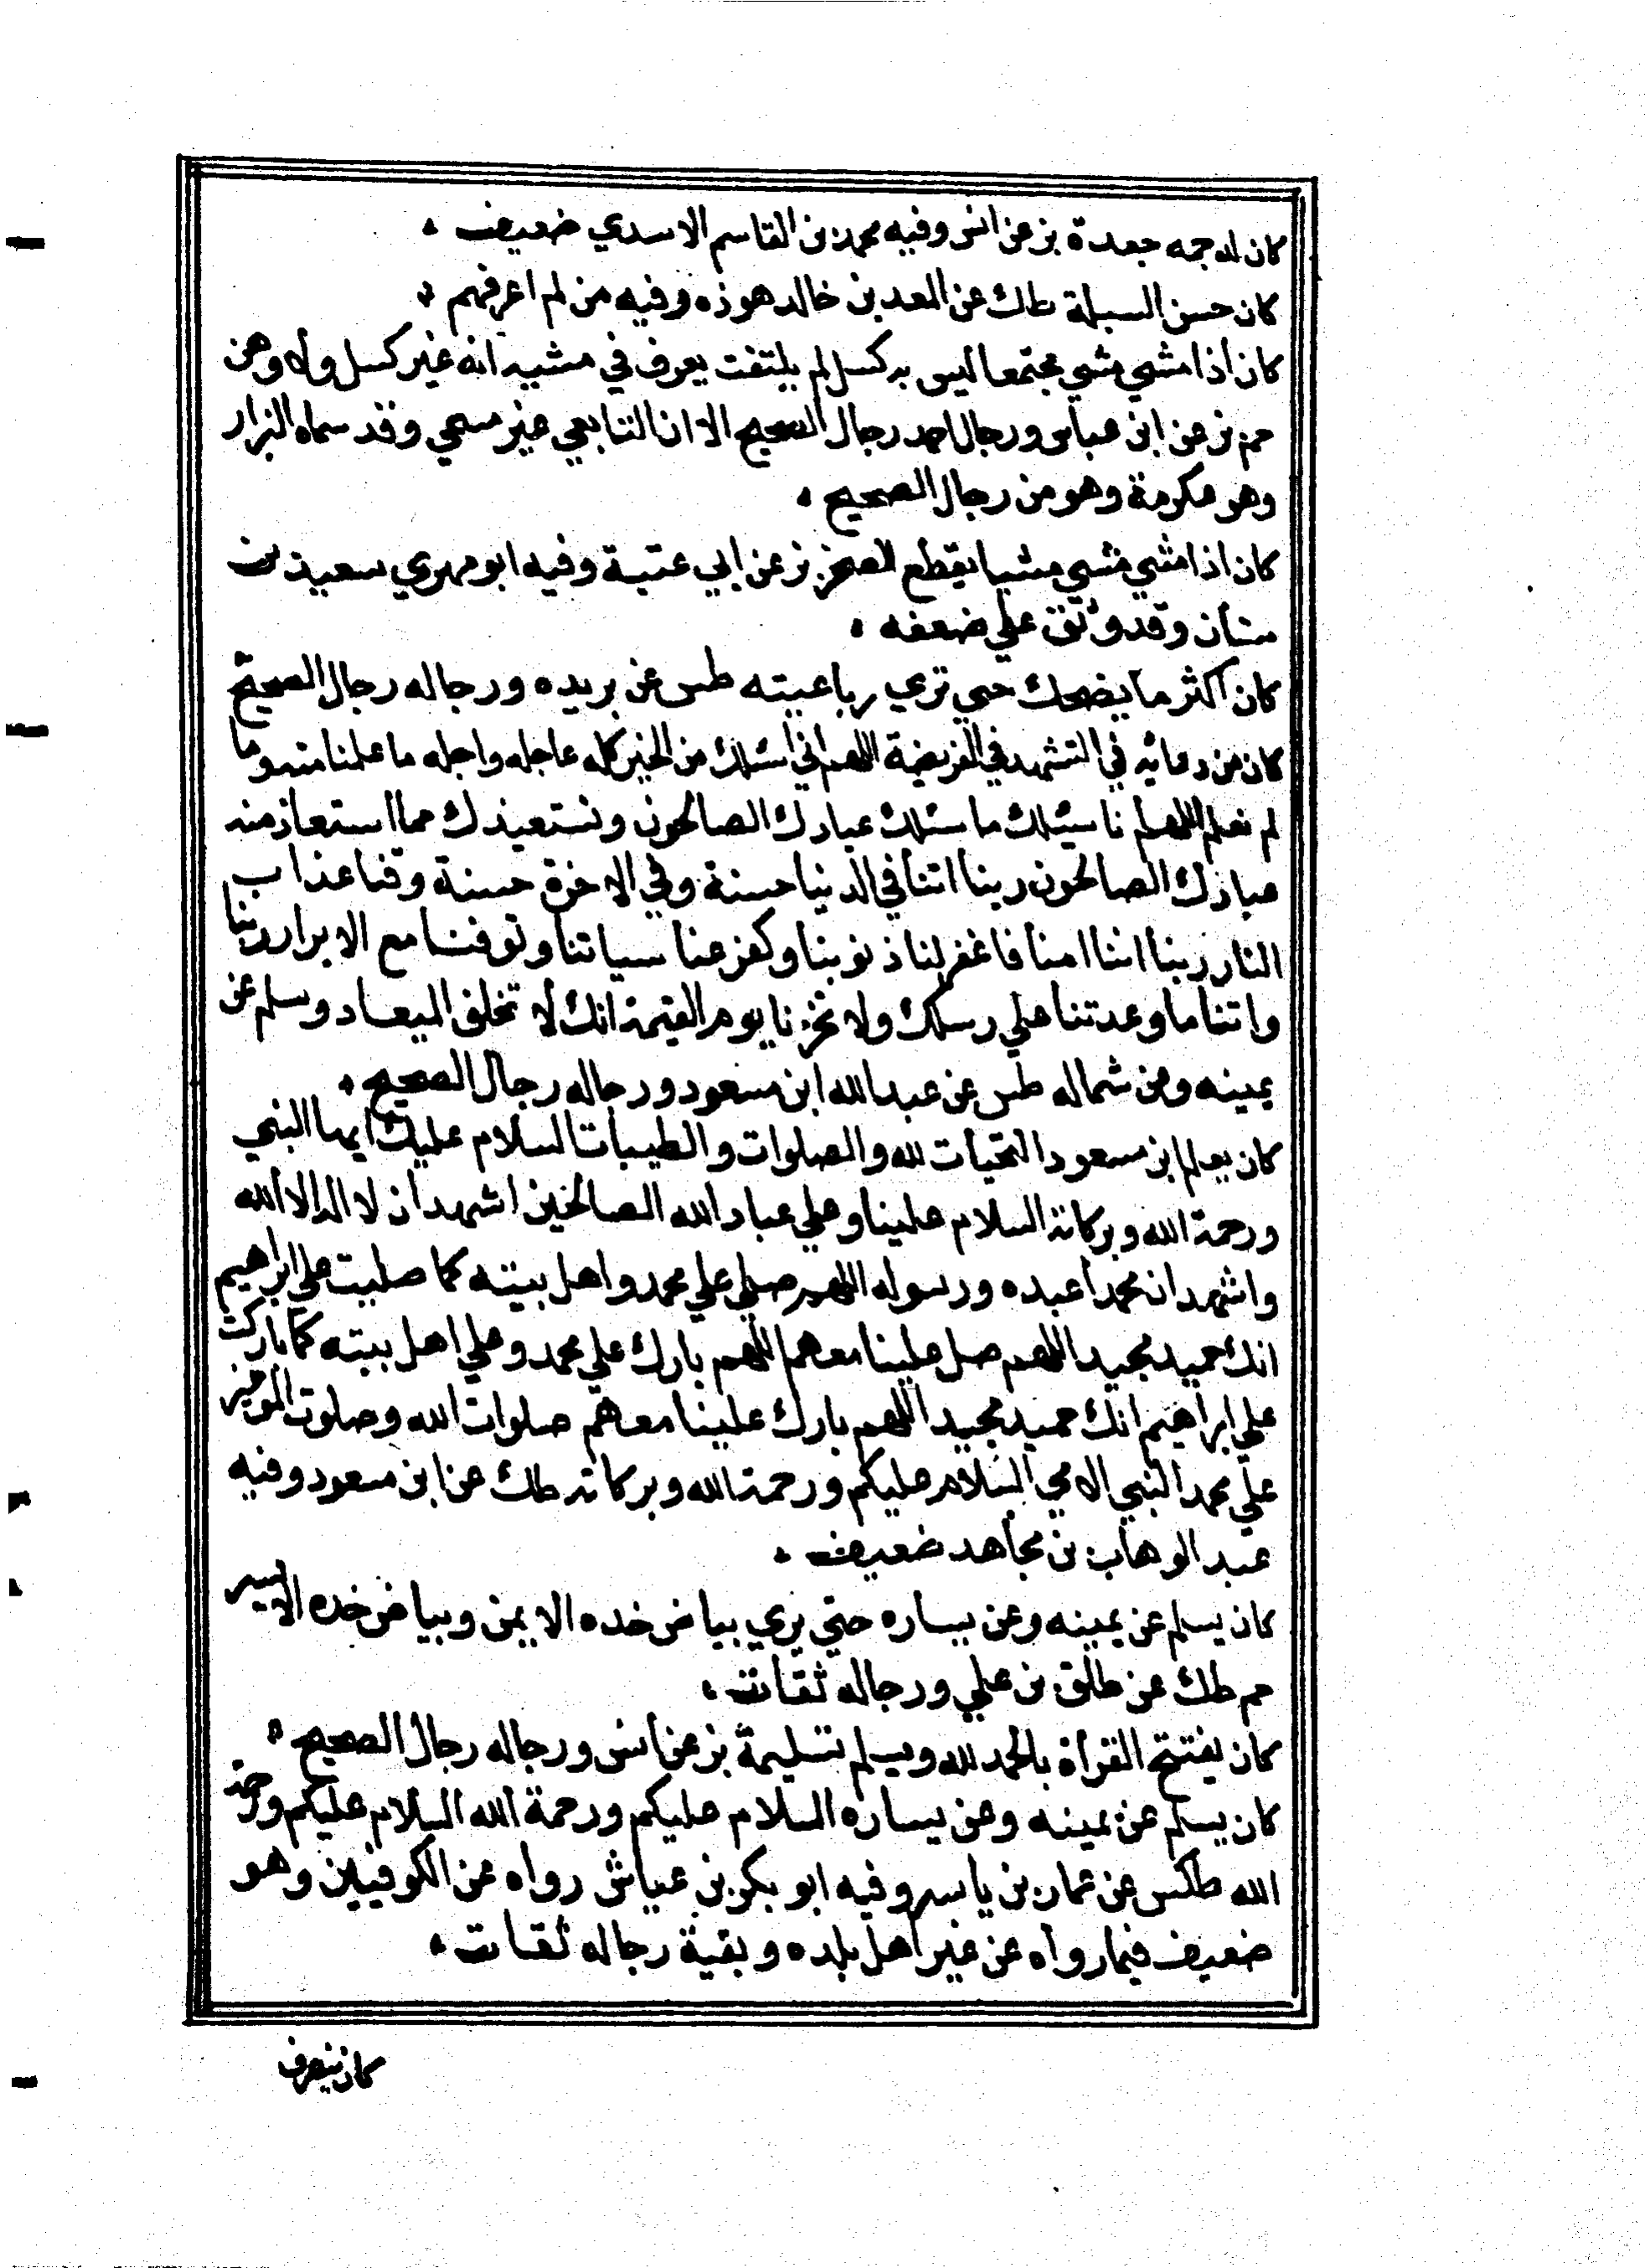 كان له جمه جعدة بز عن انس وفيه محمد بن القاسم الاسدي ضعيف
كان حسن السبلة طك عن العد بن خالد هوذه وفيه من لم اعرفهم
كان اذا مشي مشي مجتمعا ليس به كسل لم يلتفت يعرف في مشيه انه غير كسل ولا وهن
حم بز عن ابن عباس ورجال احمد رجال الصحيح الا ان التابعي غير مسمي وقد سماه البزار
وهو عكرمة وهو من رجال الصحيح
كان اذا مشي مشي مشيا يقطع الصخر بز عن ابي عتبة وفيه ابو مهدي سعيد بن
سنان وقد وثق علي ضعفه
كان اكثر ما يضحك حتي تري رباعيته طس عن بريده ورجاله رجال الصحيح
كان من دعائه في التشهد في الفريضة اللهم اني اسئلك من الخير كله عاجله واجله ما علمنا منه وما
لم نعلم اللهم انا سئلك ما سئلك عبادك الصالحون ونستعيذك مما استعاذ منه
عبادك الصالحون ربنا اتنا في الدنيا حسنة وفي الاخرة حسنة وقنا عذاب
النار ربنا اننا امنا فاغفر لنا ذنوبنا وكفر عنا سياتنا وتوفنا مع الابرار ربنا
واتنا ما وعدتنا علي رسلك ولا تخزنا يوم القيمة انك لا تخلف الميعاد وسلم عن
يمينه وعن شماله طس عن عبد الله ابن مسعود ورجاله رجال الصحيح
كان يعلم ابن مسعود التحيات لله والصلوات والطيبات السلام عليك ايها النبي
ورحمة الله وبركاته السلام علينا وعلي عباد الله الصالحين اشهد ان لا اله الا الله
واشهد ان محمدا عبده ورسوله اللهم صلي علي محمد واهل بيته كما صليت علي ابراهيم
انك حميد مجيد اللهم صل علينا معهم اللهم بارك علي محمد وعلي اهل بيته كما باركت
علي ابراهيم انك حميد مجيد اللهم بارك علينا معهم صلوات الله وصلوت المومنين
علي محمد النبي الامي السلام عليكم ورحمة الله وبركاته طك عن ابن مسعود وفيه
عبد الوهاب بن مجاهد ضعيف
كان يسلم عن يمينه وعن يساره حتي يري بياض خده الايمن وبياض خده الايسر
حم طك عن طلق بن علي ورجاله ثقات
كان يفتتح القرأة بالحمد لله ويسلم تسليمة بز عن أنس ورجاله رجال الصحيح
كان يسلم عن يمينه وعن يساره السلام عليكم ورحمة الله السلام عليكم ورحمة
الله طكس عن عمار بن ياسر وفيه ابو بكر بن عياش رواه عن الكوفيين وهو
ضعيف فيما رواه عن غير اهل بلده وبقية رجاله ثقات
كان ينصرف